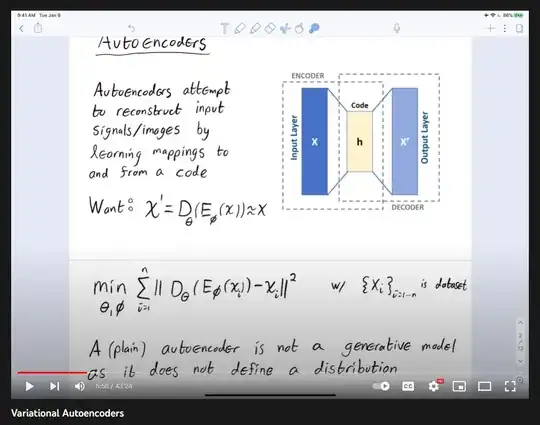 9:41 AM Tue Jan 9
86%
AUTOENCODERS
Autoencoders attempt
to reconstruct input
signals/images by
learning mappings to
and from a code
Want: x' = D_θ(E_φ(x)) ≈ x
ENCODER
Code
Input Layer
X
h
X'
Output Layer
DECODER
min_{θ,φ} Σ_{i=1}^{n} || D_θ(E_φ(x_i)) - x_i ||² w/ {x_i}_{i=1-n} is dataset
A (plain) autoencoder is not a generative model
as it does not define a distribution
5:58 / 43:24
CC
Variational Autoencoders